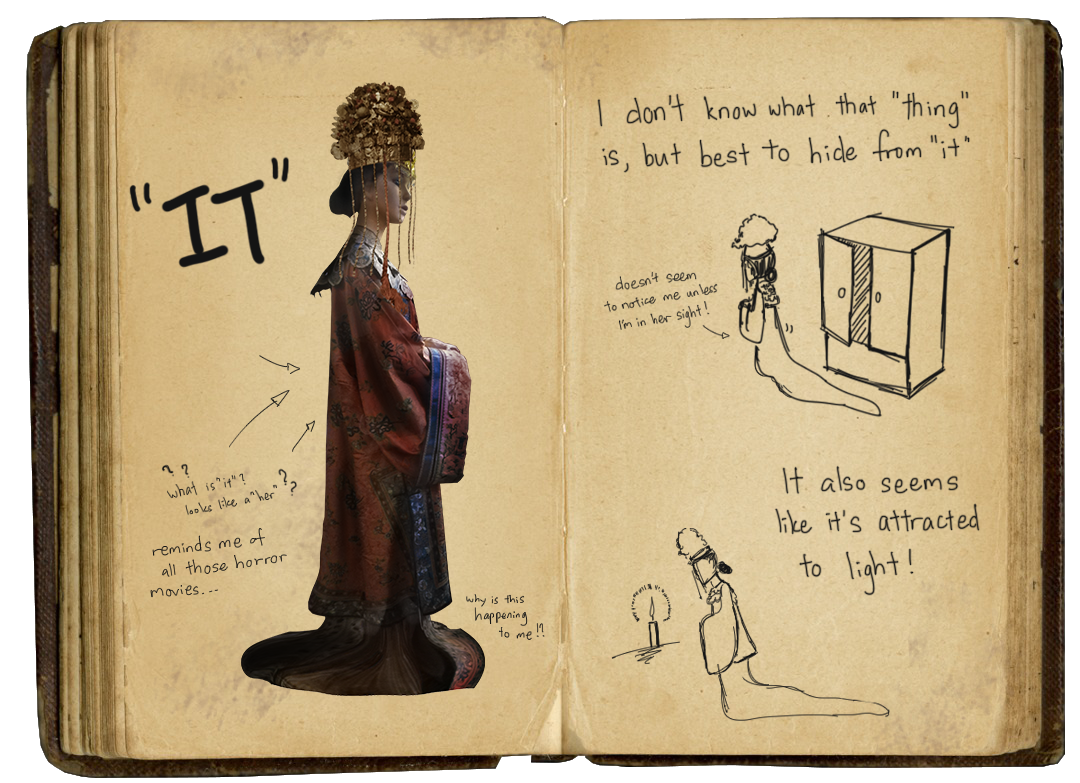 "IT"
? ?
what is "it"?
looks like a "her" ? ?
reminds me of
all those horror
movies...
why is this
happening
to me!!
I don't know what that "thing"
is, but best to hide from "it"
doesn't seem
to notice me unless
I'm in her sight!
It also seems
like it's attracted
to light!